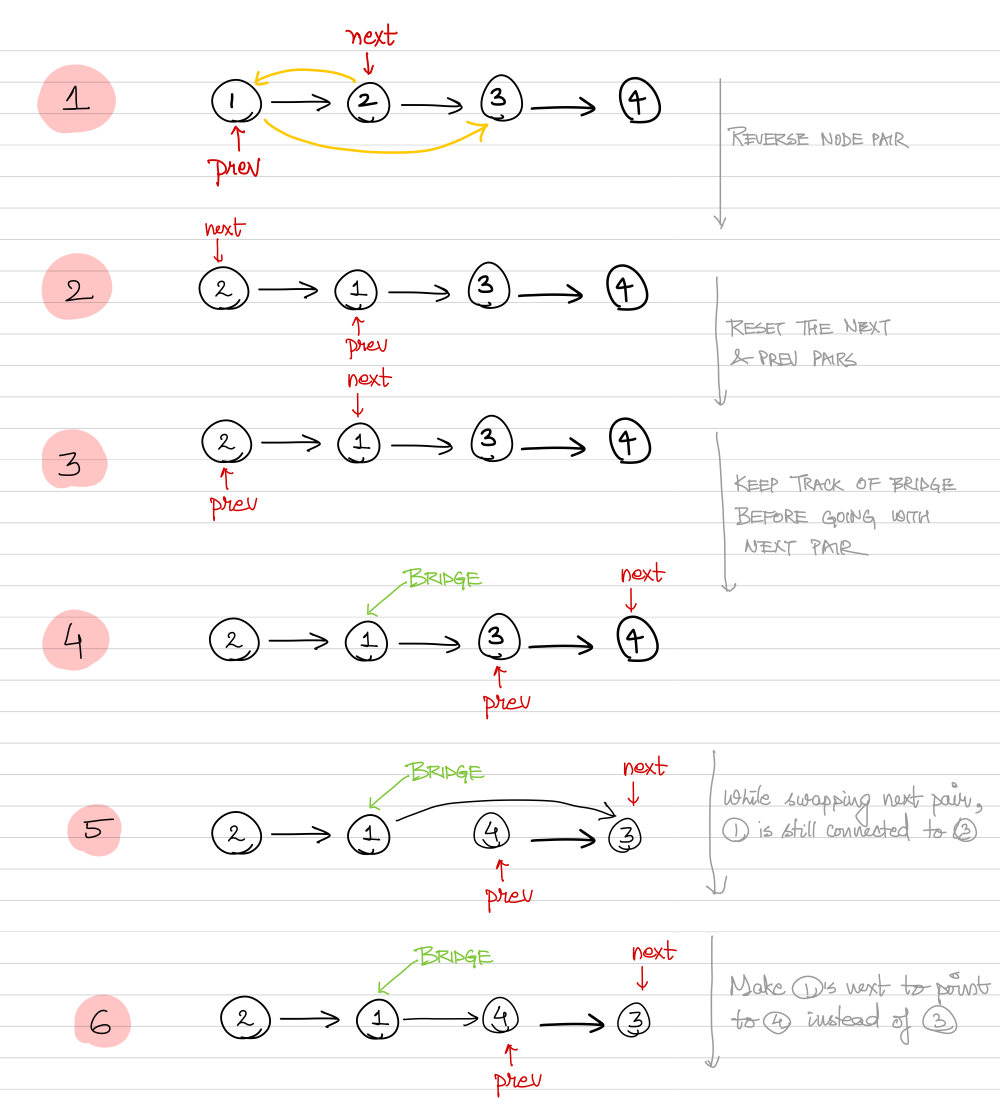 next
1
1 2 3 4
prev
REVERSE NODE PAIR
next
2
2 1 3 4
prev
RESET THE NEXT
& PREV PAIRS
next
3
2 1 3 4
prev
KEEP TRACK OF BRIDGE
BEFORE GOING WITH
NEXT PAIR
BRIDGE next
4
2 1 3 4
prev
BRIDGE next
5
2 1 4 3
prev
While swapping next pair,
1 is still connected to 3
BRIDGE next
6
2 1 4 3
prev
Make 1's next to point
to 4 instead of 3